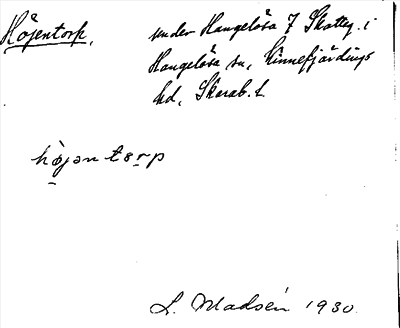 Höjentorp.
under Hangelösa 7 Skatteg. i
Hangelösa sn, Kinnefjärdings
hd, Skarab. l.
höjəntorp
L. Madsén 1930.